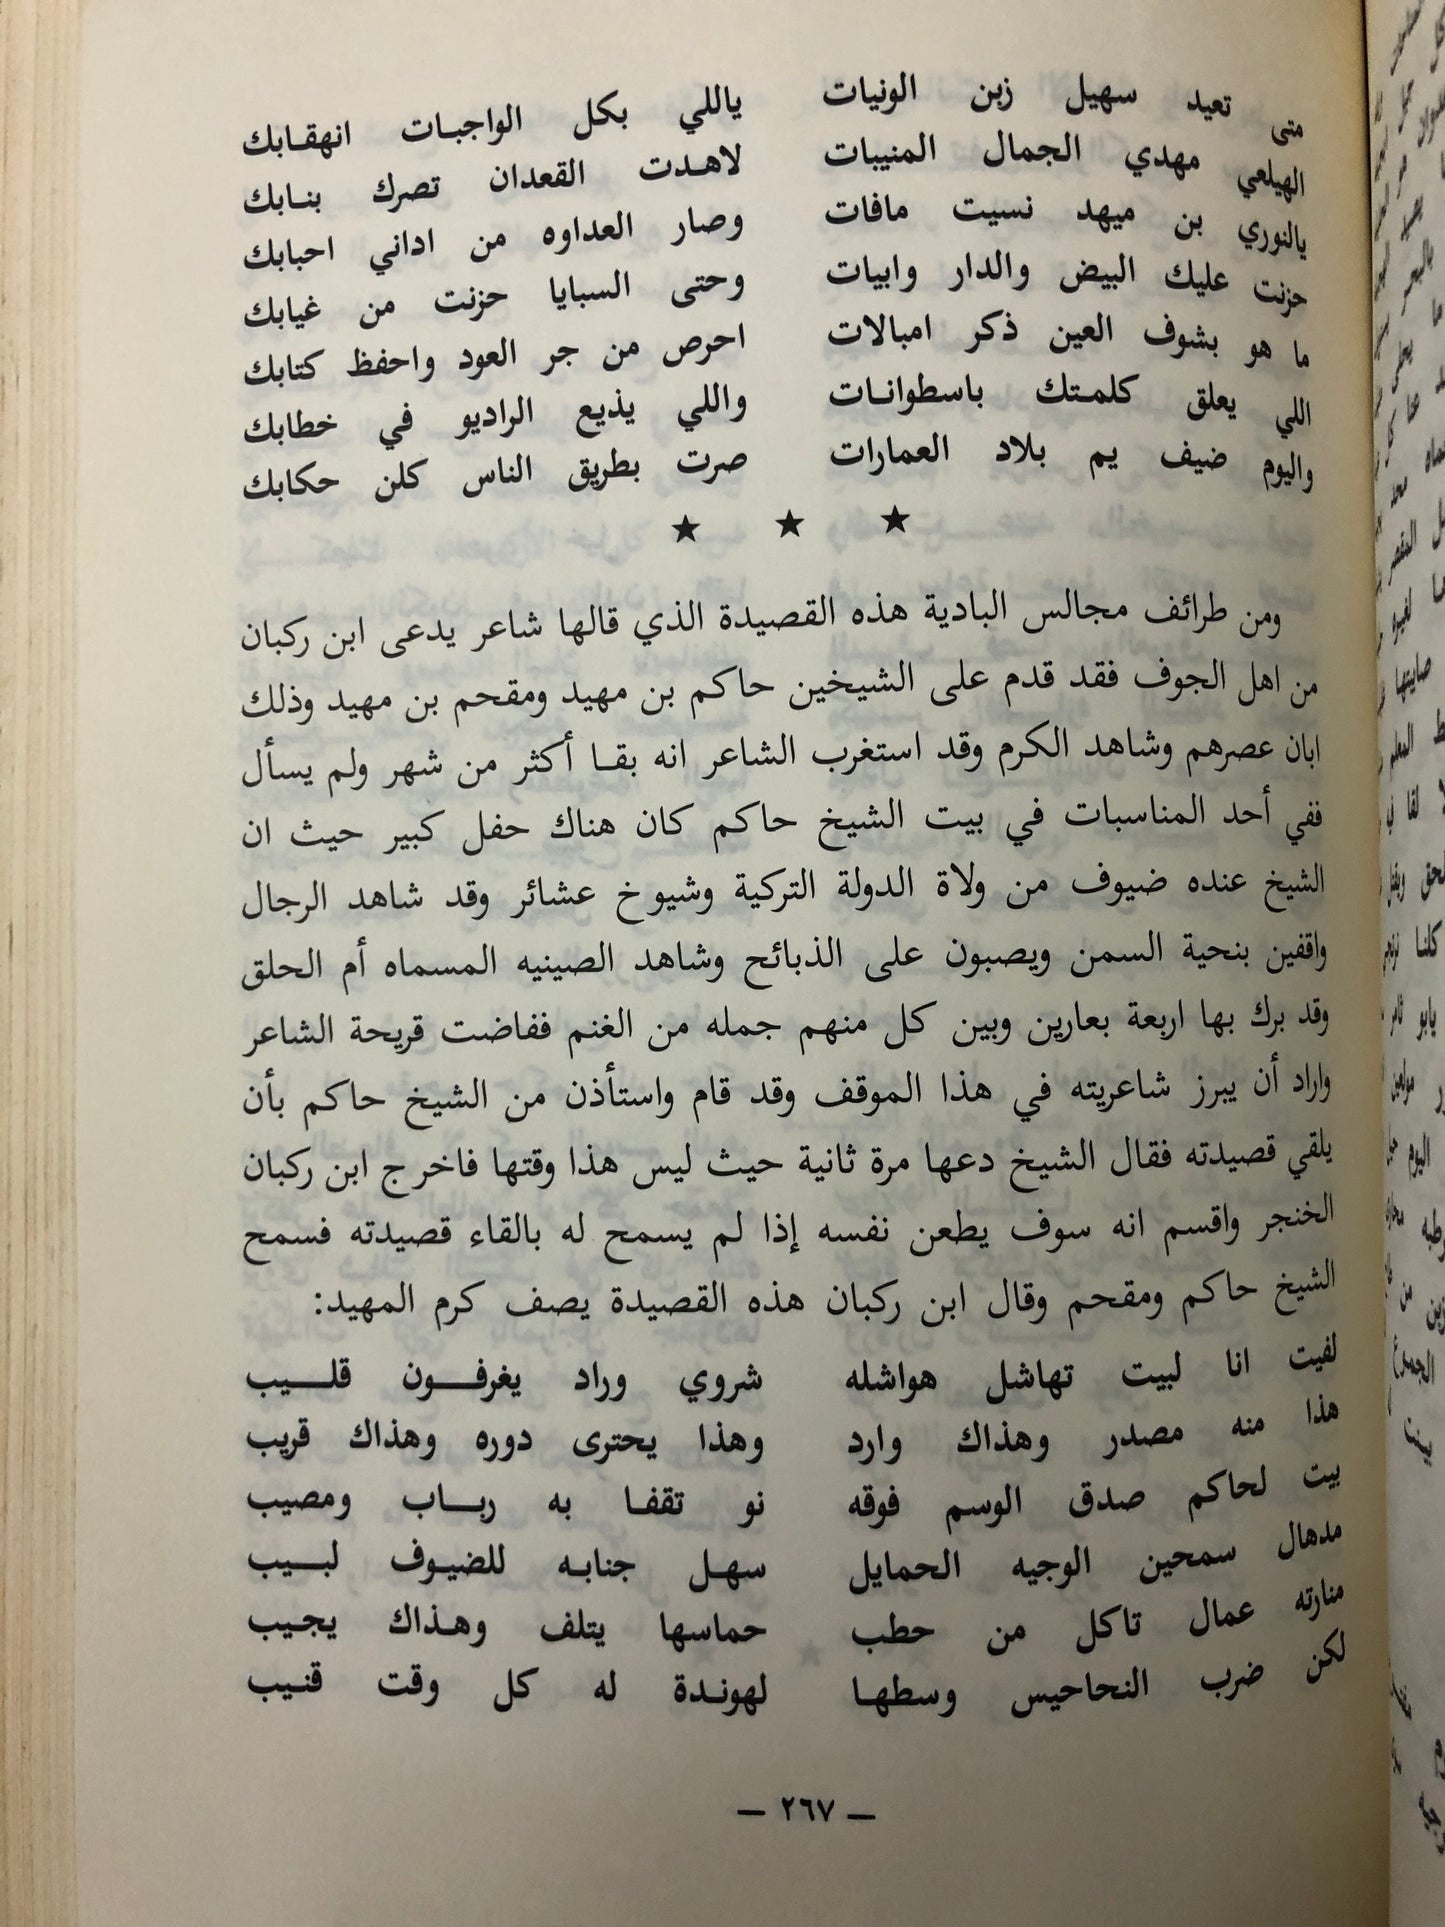 متى تعيد سهيل زبن الونيات ياللي بكل الواجبات انهقابك
الهيلعي مهدي الجمال المنيبات لاهدت القعدان تصرك بنابك
يالنوري بن ميهد نسيت مافات وصار العداوه من اداني احبابك
حزنت عليك البيض والدار وابيات وحتى السبايا حزنت من غيابك
ما هو بشوف العين ذكر امبالات احرص من جر العود واحفظ كتابك
اللي يعلق كلمتك باسطوانات واللي يذيع الراديو في خطابك
واليوم ضيف يم بلاد العمارات صرت بطريق الناس كلن حكابك
★ ★ ★
ومن طرائف مجالس البادية هذه القصيدة الذي قالها شاعر يدعى ابن ركبان
من اهل الجوف فقد قدم على الشيخين حاكم بن مهيد ومقحم بن مهيد وذلك
ابان عصرهم وشاهد الكرم وقد استغرب الشاعر انه بقا أكثر من شهر ولم يسأل
ففي أحد المناسبات في بيت الشيخ حاكم كان هناك حفل كبير حيث ان
الشيخ عنده ضيوف من ولاة الدولة التركية وشيوخ عشائر وقد شاهد الرجال
واقفين بنحية السمن ويصبون على الذبائح وشاهد الصينيه المسماه أم الحلق
وقد برك بها اربعة بعارين وبين كل منهم جمله من الغنم ففاضت قريحة الشاعر
واراد أن يبرز شاعريته في هذا الموقف وقد قام واستأذن من الشيخ حاكم بأن
يلقي قصيدته فقال الشيخ دعها مرة ثانية حيث ليس هذا وقتها فاخرج ابن ركبان
الخنجر واقسم انه سوف يطعن نفسه إذا لم يسمح له بالقاء قصيدته فسمح
الشيخ حاكم ومقحم وقال ابن ركبان هذه القصيدة يصف كرم المهيد:
لفيت انا لبيت تهاشل هواشله شروي وراد يغرفون قليب
هذا منه مصدر وهذاك وارد وهذا يحترى دوره وهذاك قريب
بيت لحاكم صدق الوسم فوقه نو تقفا به رباب ومصيب
مدهال سمحين الوجيه الحمايل سهل جنابه للضيوف لبيب
منارته عمال تاكل من حطب حماسها يتلف وهذاك يجيب
لكن ضرب النحاحيس وسطها لهوندة له كل وقت قنيب
— ٢٦٧ —